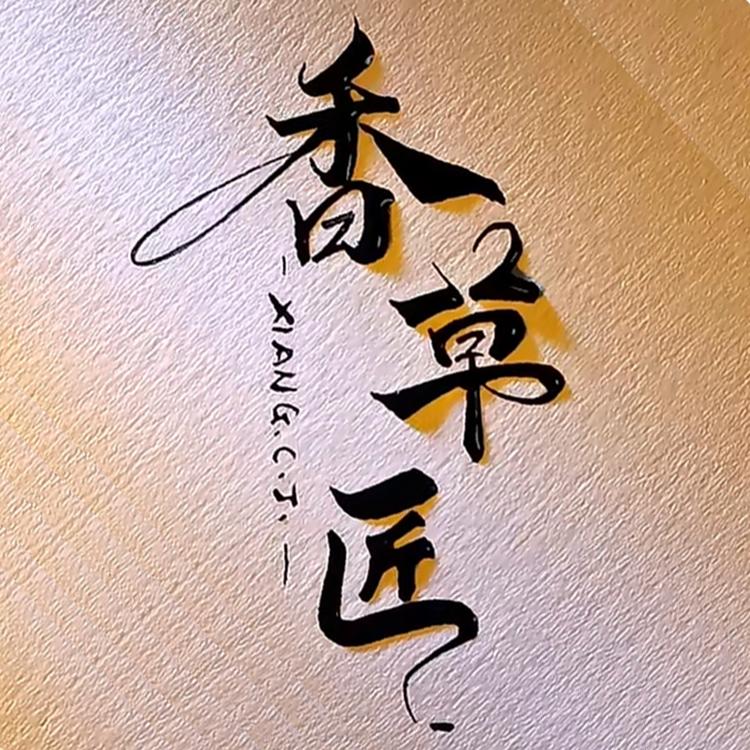 香草匠
- XIANG.C.J. -